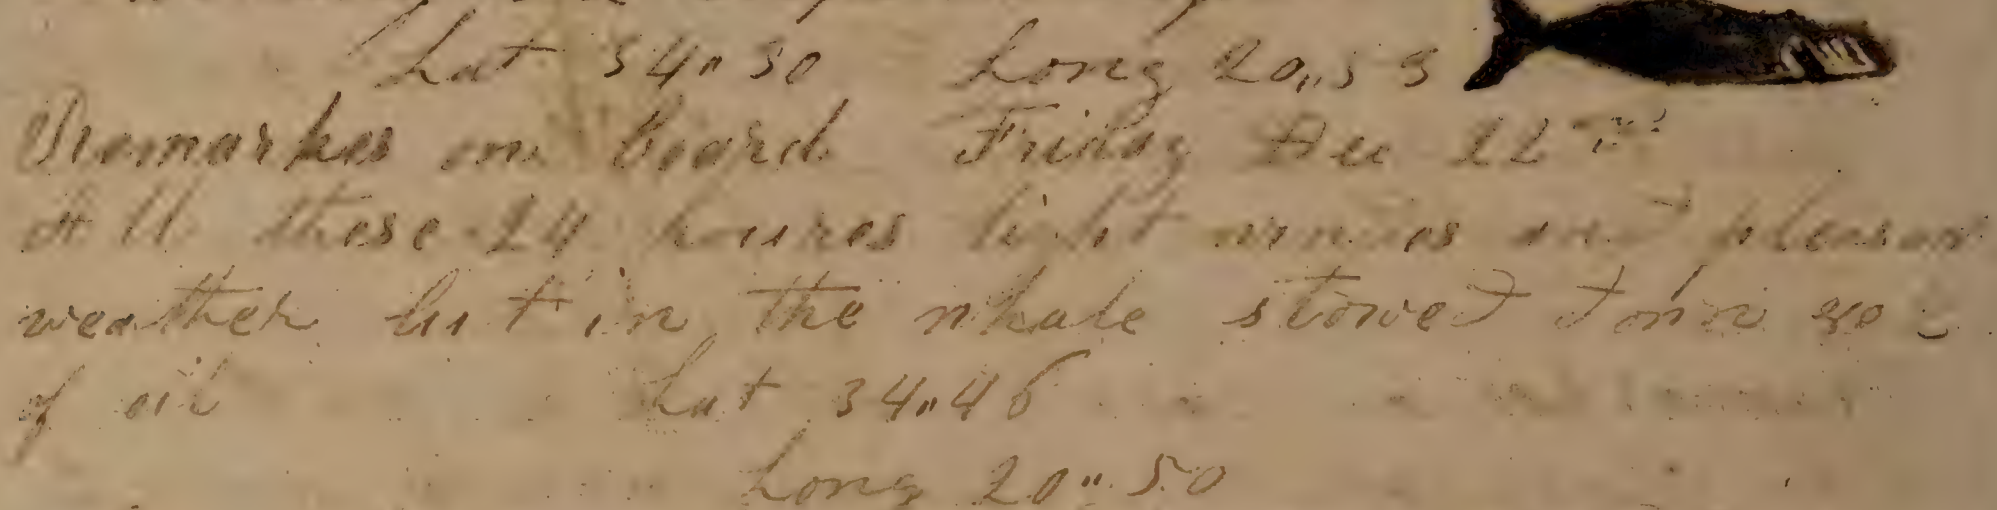 Lat 34„30 Long 20„53
Remarkes on board Friday Dec 22
All these 24 houres light windes and pleasan
weather but in the whale stowed down
of oil Lat 34„46
Long 20„50